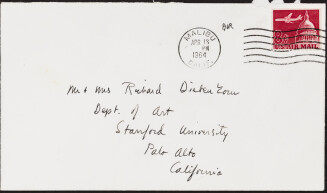 AIR
MALIBU
APR 15
PM
1964
CALIF.
8¢
U.S. AIR MAIL
Mr & Mrs Richard Diebenkorn
Dept. of Art
Stanford University
Palo Alto
California